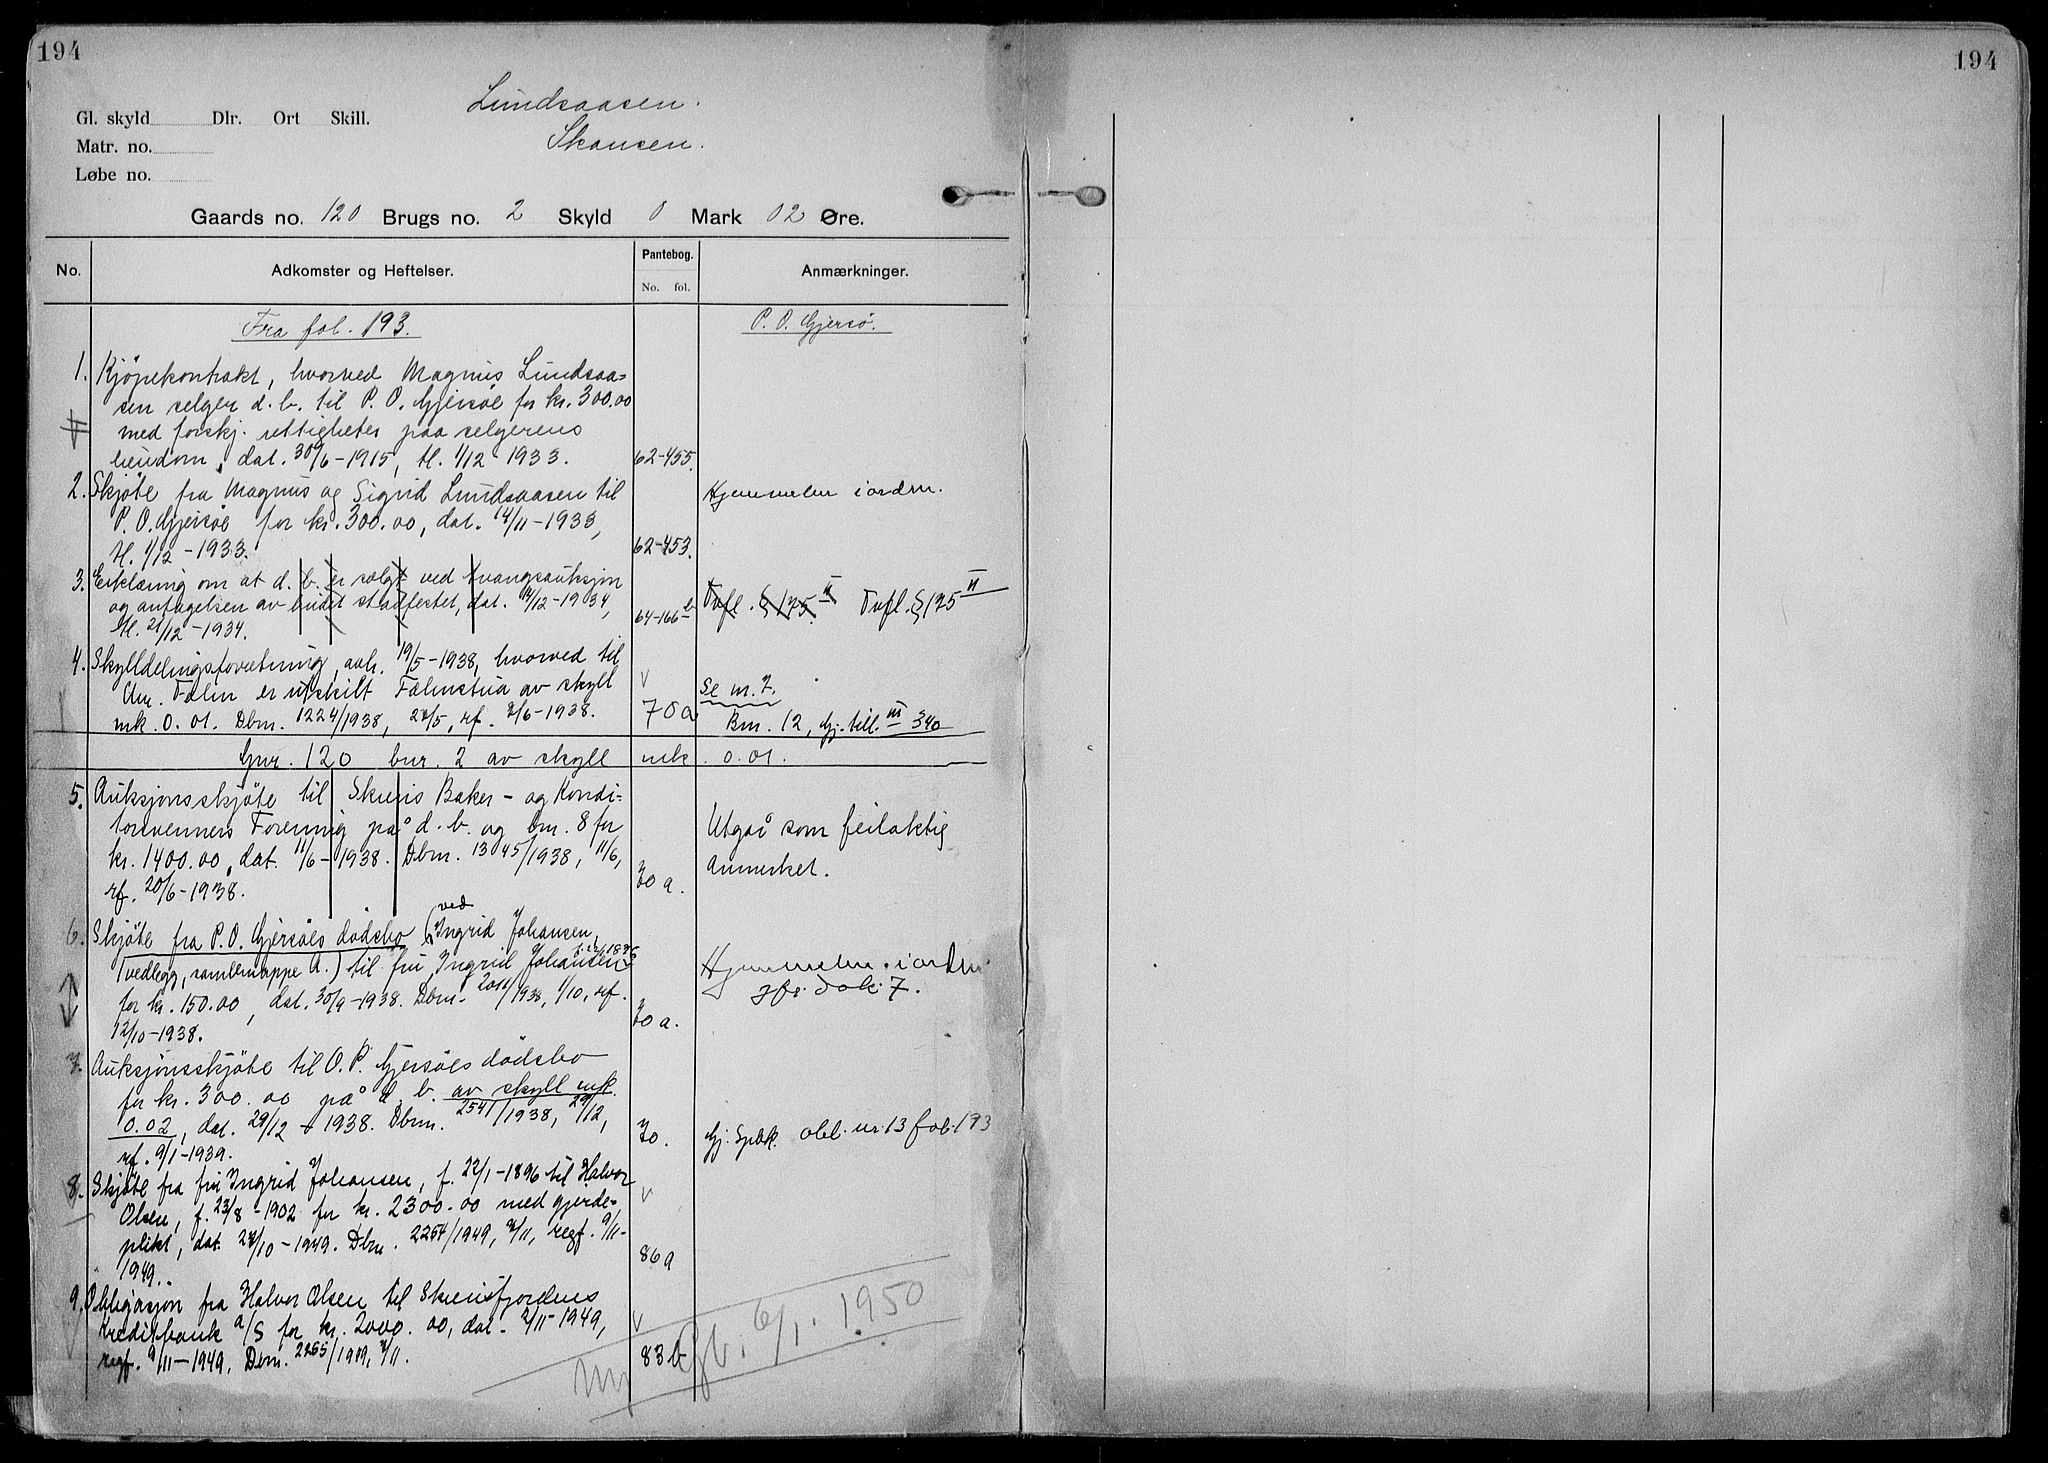 194
194
Lundsaasen.
Gl. skyld Dlr. Ort Skill.
Skansen.
Matr. no.
Løbe no.
Gaards no. 120 Brugs no. 2 Skyld 0 Mark 02 Øre.
No. Adkomster og Heftelser. Pantebog. Anmærkninger.
No. fol.
Fra fol. 193. P. O. Gjersö.
1. Kjöpekontrakt, hvorved Magnus Lundsaa=
sen selger d. b. til P. O. Gjersöe for kr. 300.00
med forskj. rettigheter paa selgerens
eiendom, dat. 30/6-1915, tl. 1/12-1933. 62-455.
2. Skjöte fra Magnus og Sigrid Lundsaasen til Hjemmelen i orden.
P. O. Gjersöe for kr. 300.00, dat. 14/11-1933,
tl. 1/12-1933. 62-453.
3. Erklæring om at d. b. er solgt ved tvangsauksjon
og antagelsen av budet stadfestet, dat. 14/12-1934, 64-166b Tvfl. § 175 II Tvfl. § 175 II
tl. 21/12-1934.
4. Skylldelingsforretning, avh. 19/5-1938, hvorved til
Chr. Falin er utskilt Falinstua av skyll Se nr. 7.
mk. 0.01. Dbnr. 1224/1938, 27/5, rf. 2/6-1938. 70a Bnr. 12, Gj. till. III 340
Gnr. 120 bnr. 2 av skyll mk. 0.01.
5. Auksjonsskjöte til Skiens Baker- og Kondi=
torsvenners Forening på d. b. og bnr. 8 for Utgår som feilaktig
kr. 1400.00, dat. 11/6-1938. Dbnr. 1345/1938, 11/6, anmerket.
rf. 20/6-1938. 70a.
ved
6. Skjöte fra P. O. Gjersöes dödsbo (Ingrid Johansen,
f. 22/1 1896
(vedlegg, samlemappe A.) til fru Ingrid Johansen Hjemmelen i orden
for kr. 150.00, dat. 30/9-1938. Dbnr. 2011/1938, 1/10, rf. jfr. dok. 7.
12/10-1938. 70a.
7. Auksjonsskjöte til O. P. Gjersöes dödsbo
for kr. 300.00 på d. b. av skyll mk.
0.02, dat. 29/12-1938. Dbnr. 2541/1938, 29/12, 70. Gj. Spbk. obl. nr 13 fol. 193
rf. 9/1-1939.
8. Skjöte fra fru Ingrid Johansen, f. 22/1-1896 til Halvor
Olsen, f. 23/8-1902 for kr. 2300.00 med gjerde-
plikt, dat. 27/10-1949. Dbnr. 2254/1949, 2/11, regf. 9/11-
1949. 86a
9. Obligasjon fra Halvor Olsen til Skiensfjordens
Kreditbank A/S for kr. 2000.00, dat. 2/11-1949,
regf. 9/11-1949, Dbnr. 2255/1949, 2/11. 83b
Gb. 6/1. 1950